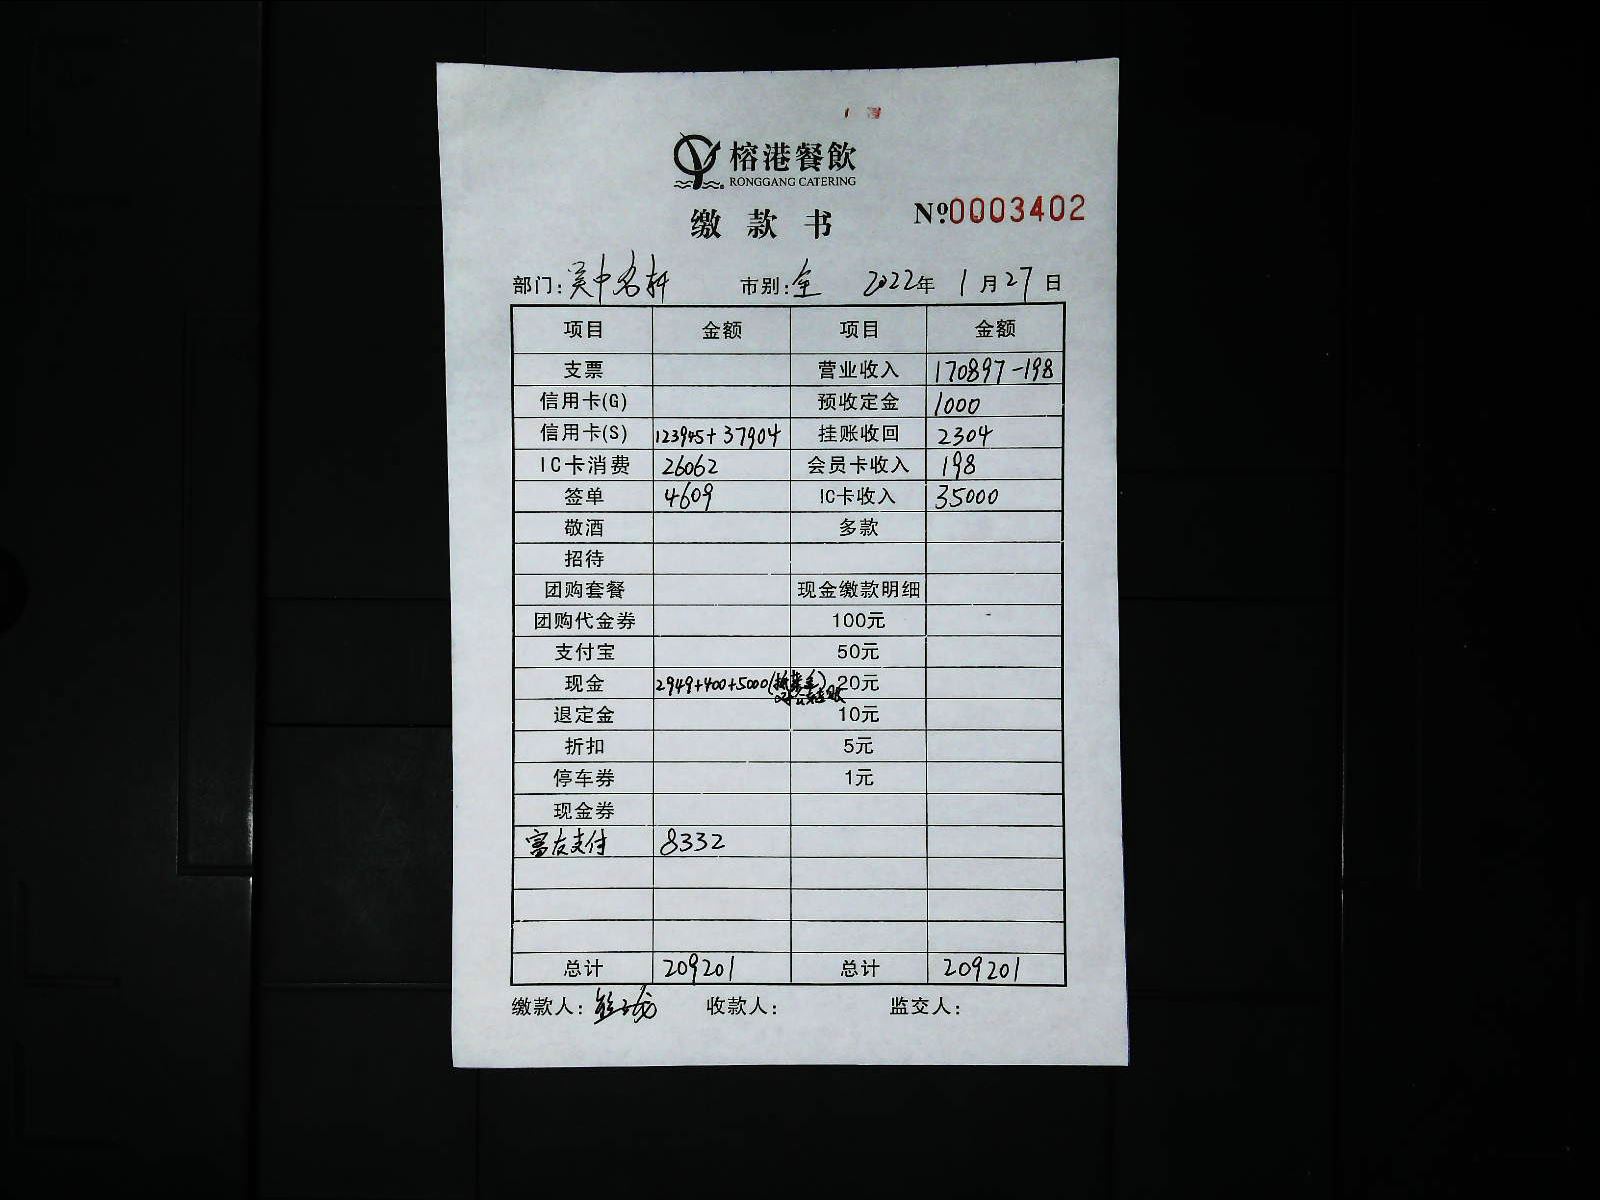 榕港餐飲
RONGGANG CATERING
缴款书
№0003402
部门:吴中名轩 市别:全 2022年1月27日
项目 金额 项目 金额
支票 营业收入 170897-198
信用卡(G) 预收定金 1000
信用卡(S) 123945+37904 挂账收回 2304
IC卡消费 26062 会员卡收入 198
签单 4609 IC卡收入 35000
敬酒 多款
招待
团购套餐 现金缴款明细
团购代金券 100元
支付宝 50元
现金 2949+400+5000 20元
退定金 10元
折扣 5元
停车券 1元
现金券
富友支付 8332
总计 209201 总计 209201
缴款人: 收款人: 监交人: